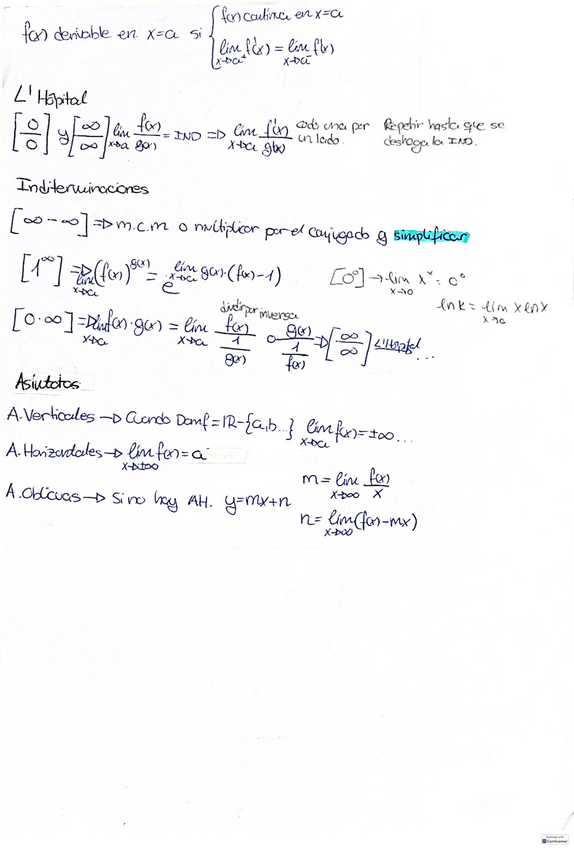 f(x) derivable en x=a si { f(x) continua en x=a
lim x→a⁺ f'(x) = lim x→a⁻ f'(x)
L'Hôpital
[0/0] y [∞/∞] lim x→a f(x)/g(x) = IND ⇒ lim x→a f'(x)/g'(x) cada una por un lado. Repetir hasta que se deshaga la IND.
Indeterminaciones
[∞-∞] ⇒ m.c.m o multiplicar por el conjugado y simplificar
[1^∞] ⇒ lim x→a (f(x))^g(x) = e^lim x→a g(x)·(f(x)-1) [0⁰] → lim x→0 x^x = 0⁰
ln k = lim x→0 x ln x
dividir por inversa
[0·∞] ⇒ lim x→a f(x)·g(x) = lim x→a f(x)/(1/g(x)) o g(x)/(1/f(x)) ⇒ [∞/∞] L'Hôpital...
Asíntotas
A. Verticales → Cuando Domf = ℝ-{a,b...} lim x→a f(x) = ±∞...
A. Horizontales → lim x→±∞ f(x) = a
A. Oblicuas → Si no hay AH. y=mx+n
m = lim x→∞ f(x)/x
n = lim x→∞ (f(x)-mx)
Scanned with
CamScanner